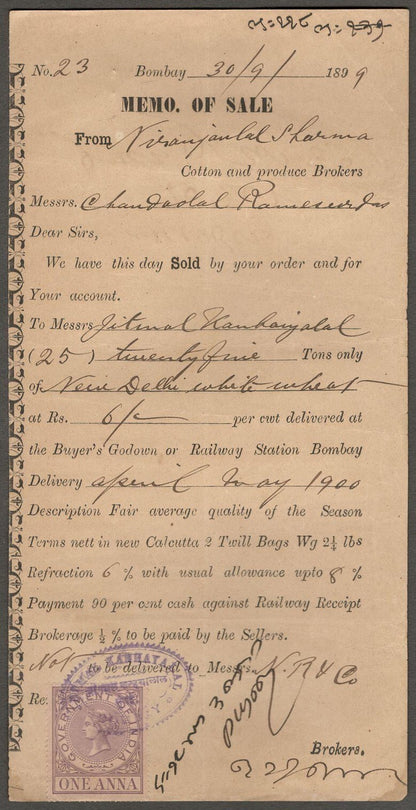 No. 23 Bombay 30/9/ 1899
MEMO. OF SALE
From Niranjanlal Sharma
Cotton and produce Brokers
Messrs. Chandoolal Rameserdas
Dear Sirs,
We have this day Sold by your order and for
Your account.
To Messrs Jitmal Kanhaiyalal
(25) twenty five Tons only
of New Delhi white wheat
at Rs. 6/- per cwt delivered at
the Buyer's Godown or Railway Station Bombay
Delivery april May 1900
Description Fair average quality of the Season
Terms nett in new Calcutta 2 Twill Bags Wg 2¼ lbs
Refraction 6 % with usual allowance upto 8 %
Payment 90 per cent cash against Railway Receipt
Brokerage ½ % to be paid by the Sellers.
Not to be delivered to Messrs. N. R & Co
Re
GOVERNMENT OF INDIA
ONE ANNA
Brokers.